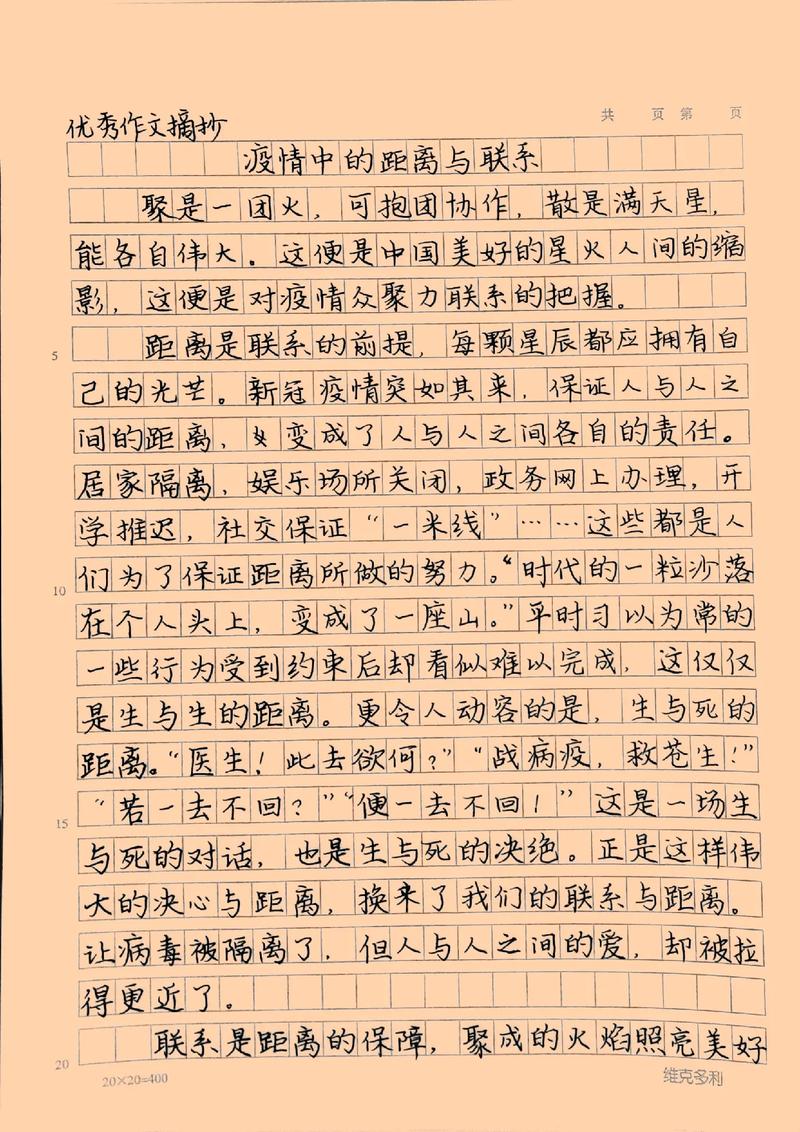 共 页 第 页
优秀作文摘抄
疫情中的距离与联系
聚是一团火，可抱团协作，散是满天星，
能各自伟大。这便是中国美好的星火人间的缩
影，这便是对疫情众聚力联系的把握。
距离是联系的前提，每颗星辰都应拥有自
5
己的光芒。新冠疫情突如其来，保证人与人之
间的距离，变成了人与人之间各自的责任。
居家隔离，娱乐场所关闭，政务网上办理，开
学推迟，社交保证“一米线”……这些都是人
们为了保证距离所做的努力。“时代的一粒沙落
10
在个人头上，变成了一座山。”平时习以为常的
一些行为受到约束后却看似难以完成，这仅仅
是生与生的距离。更令人动容的是，生与死的
距离。“医生！此去欲何？”“战病疫，救苍生！”
“若一去不回？”“便一去不回！”这是一场生
15
与死的对话，也是生与死的决绝。正是这样伟
大的决心与距离，换来了我们的联系与距离。
让病毒被隔离了，但人与人之间的爱，却被拉
得更近了。
联系是距离的保障，聚成的火焰照亮美好
20
20×20=400
维克多利